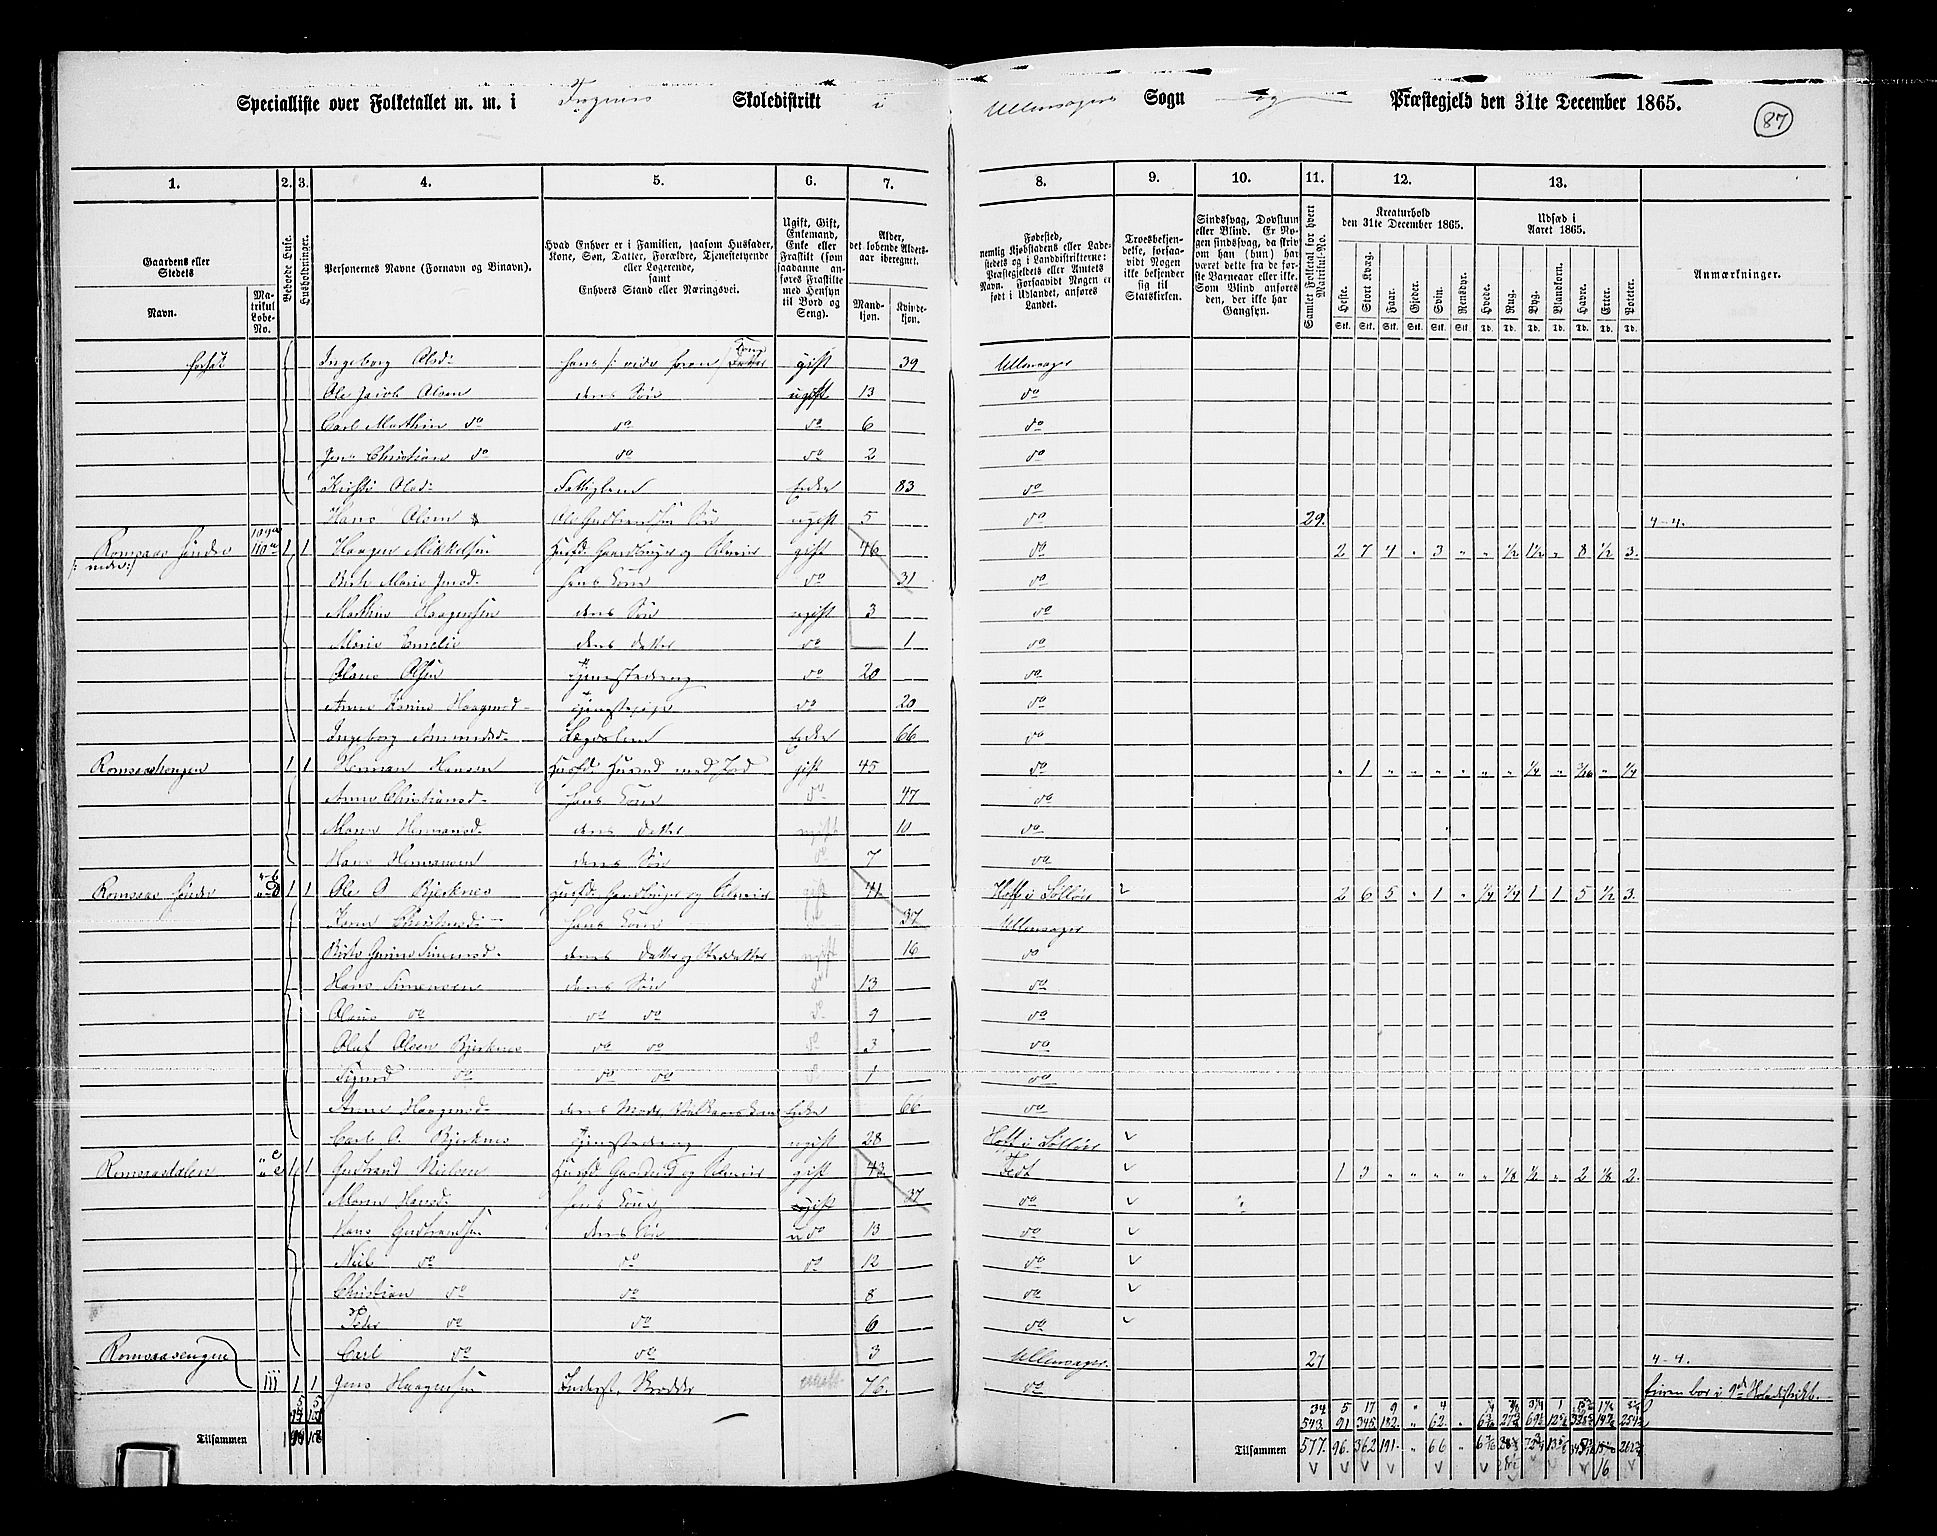 Specialliste over Folketallet m. m. i Skoledistrikt i Ullensager Sogn og Præstegjeld den 31te December 1865.
87
1. 2. 3. 4. 5. 6. 7. 8. 9. 10. 11. 12. 13.
Gaardens eller Stedets
Navn.
Matrikul Løbe-No.
Bebodde Huse.
Husholdninger.
Personernes Navne (Fornavn og Binavn).
Hvad Enhver er i Familien, saasom Husfader, Kone, Søn, Datter, Forældre, Tjenestetyende eller Logerende, samt Enhvers Stand eller Næringsvei.
Ugift, Gift, Enkemand, Enke eller Fraskilt (som saadanne anføres Fraskilte med Hensyn til Bord og Seng).
Alder, det løbende Alders-aar iberegnet.
Mandkjøn.
Kvindekjøn.
Fødested, nemlig Kjøbstadens eller Ladestedets og i Landdistrikterne: Præstegjeldets eller Amtets Navn. Forsaavidt Nogen er født i Udlandet, anføres Landet.
Troesbekjendelse, forsaavidt Nogen ikke bekjender sig til Statskirken.
Sindssvag, Døvstum eller Blind. Er Nogen sindssvag, da skriv om han (hun) har været dette fra de første Barneaar eller ikke. Som Blind anføres den, der ikke har Gangsyn.
Samlet Folketal for hvert Matrikul-No.
Kreaturhold den 31te December 1865.
Heste. Stort Kvæg. Faar. Gjeder. Svin. Rensdyr.
Udsæd i Aaret 1865.
Hvede. Rug. Byg. Blandkorn. Havre. Erter. Poteter.
Stk. Stk. Stk. Stk. Stk. Stk. Td. Td. Td. Td. Td. Td. Td.
Anmærkninger.
forsat Ingeborg Olsd. gift 39 Ullensager
Ole Jacob Olsen deres Søn ugift 13 do
Carl Mathin do do do 6 do
Jens Christian do do do 2 do
Kirsti Olsd. Fattiglem Enke 83 do
Hans Olsen ugift 5 do 29. 4-4.
Romsaas søndre /: nedre :/ 110 1 1 Haagen Mikkelsen Husfd. Gaardbruger og Selveier gift 46 do 2 7 4 " 3 " " ½ 1½ " 8 ½ 3.
Birte Marie hans Kone do 31 do
Mathin Haagensen deres Søn ugift 3 do
Marie Emelie deres Datter do 1 do
Olaus Olsen Tjenestedreng do 20 do
Anne Karine Haagensd. Tjenestepige do 20 do
Ingeborg Lægdslem Enke 66 do
Romsaashougen 1 1 Herman Hansen Husfd. Husmd med Jord gift 45 do " 1 " " " " " " ¼ " " ¼
Anne Christiansd. hans Kone do 47 do
Maren Hermansd. deres Datter ugift 10 do
Hans Hermansen deres Søn do 7 do
Romsaas søndre 1 1 Ole O. Bjerknes Husfd. Gaardbruger og Selveier gift 41 Hoff i Solløer 2 6 5 " 1 " ¼ ¼ 1 1 5 ½ 3.
Karen hans Kone 37 Ullensager
Simensd. deres Datter og Steddatter ugift 16 do
Hans Simensen deres Søn do 13 do
Olaus do do do do 9 do
Olaf Olsen Bjerknes do do do 3 do
Sigurd do do do do 1 do
Anne Haagensd. deres Moder, Enke 66 do
Carl O. Bjerknes Tjenestedreng ugift 28 Hoff i Solløer
Romsaasdalen 1 1 Gudbrand Nielsen Husfd. Gaardmd og Selveier gift 43 Fedt 1 3 " " " " " ⅛ ½ " 2 ⅛ 2.
Maren Hansd. hans Kone gift 37 do "
Hans Gudbrandsen deres Søn u do 13 do
Niels do do do 12 do
Christian do do 8 do
Peder do do 6 do
Carl do do 3 Ullensager. 27 4-4.
Romsaasengen 111 1 1 Jens Haagensen Inderst, Skrædder ugift 76. do
34. 5 17 9 " 4
543. 91 345. 182. " 62.
Tilsammen
Tilsammen 577. 96. 362 191. " 66